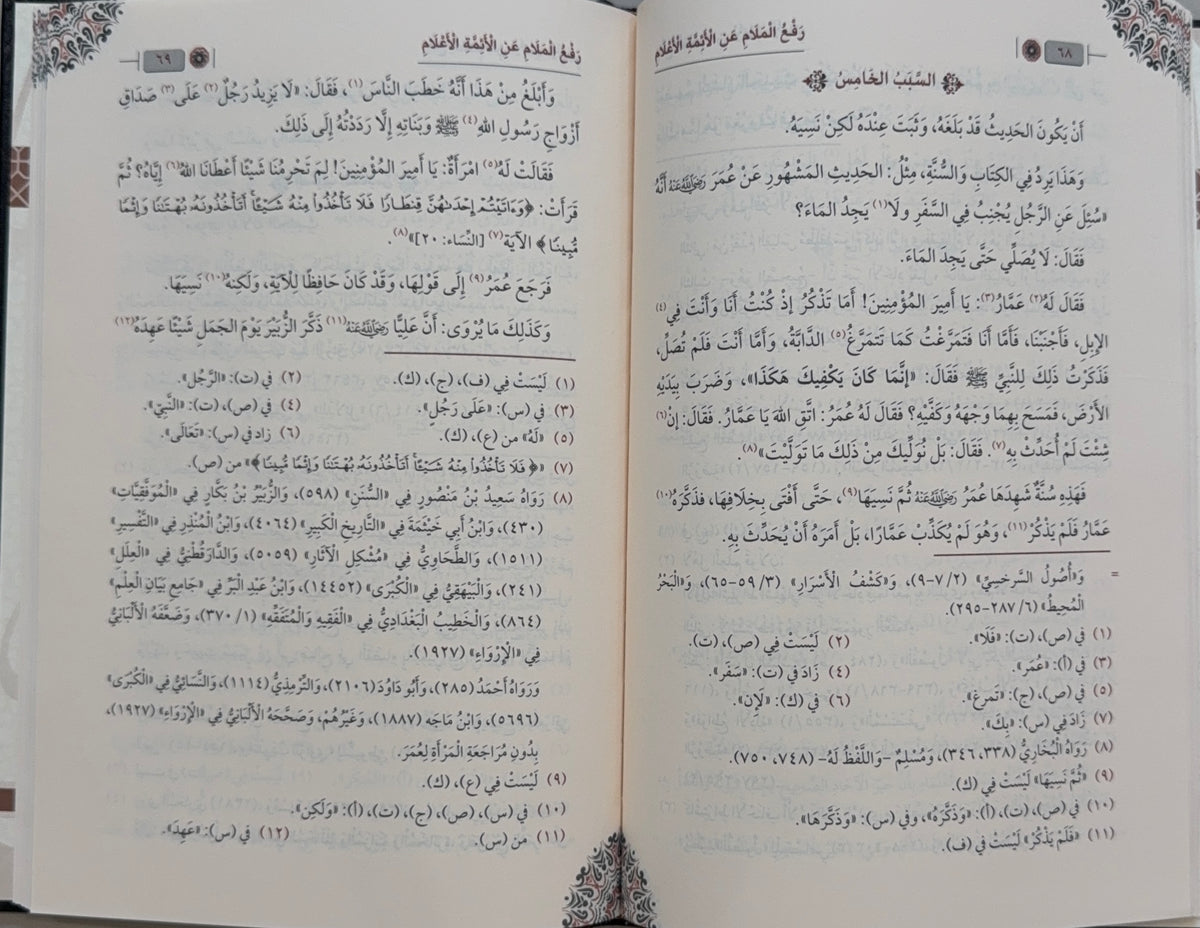 ٦٨
رَفْعُ الْمَلَامِ عَنِ الْأَئِمَّةِ الْأَعْلَامِ
السَّبَبُ الخَامِسُ
أَنْ يَكُونَ الحَدِيثُ قَدْ بَلَغَهُ، وَثَبَتَ عِنْدَهُ لَكِنْ نَسِيَهُ.
وَهَذَا يَرِدُ فِي الكِتَابِ وَالسُّنَّةِ، مِثْلُ: الحَدِيثِ المَشْهُورِ عَنْ عُمَرَ رَضِيَ اللَّهُ عَنْهُ أَنَّهُ
«سُئِلَ عَنِ الرَّجُلِ يُجْنِبُ فِي السَّفَرِ وَلَا(١) يَجِدُ المَاءَ؟
فَقَالَ: لَا يُصَلِّي حَتَّى يَجِدَ المَاءَ.
فَقَالَ لَهُ(٢) عَمَّارُ(٣): يَا أَمِيرَ المُؤْمِنِينَ! أَمَا تَذْكُرُ إِذْ كُنْتُ أَنَا وَأَنْتَ فِي(٤)
الإِبِلِ، فَأَجْنَبْنَا، فَأَمَّا أَنَا فَتَمَرَّغْتُ كَمَا تَتَمَرَّغُ(٥) الدَّابَّةُ، وَأَمَّا أَنْتَ فَلَمْ تُصَلِّ،
فَذَكَرْتُ ذَلِكَ لِلنَّبِيِّ ﷺ فَقَالَ: «إِنَّمَا كَانَ يَكْفِيكَ هَكَذَا»، وَضَرَبَ بِيَدَيْهِ
الأَرْضَ، فَمَسَحَ بِهِمَا وَجْهَهُ وَكَفَّيْهِ؟ فَقَالَ لَهُ عُمَرُ: اتَّقِ اللهَ يَا عَمَّارُ. فَقَالَ: إِنْ(٦)
شِئْتَ لَمْ أُحَدِّثْ بِهِ(٧). فَقَالَ: بَلْ نُوَلِّيكَ مِنْ ذَلِكَ مَا تَوَلَّيْتَ»(٨).
فَهَذِهِ سُنَّةٌ شَهِدَهَا عُمَرُ رَضِيَ اللَّهُ عَنْهُ ثُمَّ نَسِيَهَا(٩)، حَتَّى أَفْتَى بِخِلَافِهَا، فَذَكَّرَهُ(١٠)
عَمَّارُ فَلَمْ يَذْكُرْ(١١)، وَهُوَ لَمْ يُكَذِّبْ عَمَّارًا، بَلْ أَمَرَهُ أَنْ يُحَدِّثَ بِهِ.
= وَ«أُصُولُ السَّرخسِيِّ» (٢/ ٧-٩)، وَ«كَشْفُ الأَسْرَارِ» (٣/ ٥٩-٦٥)، وَ«الْبَحْرُ
الْمُحِيطُ» (٦/ ٢٨٧-٢٩٥).
(١) في (ص)، (ت): «فَلَا». (٢) لَيْسَتْ فِي (ص)، (ت).
(٣) في (أ): «عُمَر». (٤) زَادَ فِي (ت): «سَفَر».
(٥) في (ص)، (ج): «تَمرغ». (٦) في (ك): «لَإِن».
(٧) زَادَ فِي (س): «بِكَ».
(٨) رَوَاهُ البُخَارِيُّ (٣٣٨، ٣٤٦)، وَمُسْلِمٌ -وَاللَّفْظُ لَهُ- (٧٤٨، ٧٥٠).
(٩) «ثُمَّ نَسِيَهَا» لَيْسَتْ فِي (ك).
(١٠) في (ص)، (ت)، (أ): «وَذَكَّرَهُ»، وفي (س): «وَذَكَّرَهَا».
(١١) «فَلَمْ يَذْكُرْ» لَيْسَتْ في (ف).
رَفْعُ الْمَلَامِ عَنِ الْأَئِمَّةِ الْأَعْلَامِ
٦٩
وَأَبْلَغُ مِنْ هَذَا أَنَّهُ خَطَبَ النَّاسَ(١)، فَقَالَ: «لَا يَزِيدُ رَجُلٌ(٢) عَلَى(٣) صَدَاقِ
أَزْوَاجِ رَسُولِ اللهِ(٤) ﷺ وَبَنَاتِهِ إِلَّا رَدَدْتُهُ إِلَى ذَلِكَ.
فَقَالَتْ لَهُ(٥) امْرَأَةٌ: يَا أَمِيرَ المُؤْمِنِينَ! لِمَ تَحْرِمُنَا شَيْئًا أَعْطَانَا اللهُ(٦) إِيَّاهُ؟ ثُمَّ
قَرَأَتْ: ﴿وَءَاتَيْتُمْ إِحْدَىٰهُنَّ قِنطَارًا فَلَا تَأْخُذُوا۟ مِنْهُ شَيْـًٔا أَتَأْخُذُونَهُۥ بُهْتَٰنًا وَإِثْمًا
مُّبِينًا﴾ الآيَةَ(٧) [النِّسَاء: ٢٠]»(٨).
فَرَجَعَ عُمَرُ(٩) إِلَى قَوْلِهَا، وَقَدْ كَانَ حَافِظًا لِلْآيَةِ، وَلَكِنَّهُ(١٠) نَسِيَهَا.
وَكَذَلِكَ مَا يُرْوَى: أَنَّ عَلِيًّا رَضِيَ اللَّهُ عَنْهُ(١١) ذَكَّرَ الزُّبَيْرَ يَوْمَ الجَمَلِ شَيْئًا عَهِدَهُ(١٢)
(١) لَيْسَتْ فِي (ف)، (ج)، (ك). (٢) في (ت): «الرَّجُل».
(٣) في (س): «عَلَى رَجُلٍ». (٤) في (ص)، (ت): «النَّبِيِّ».
(٥) «لَهُ» من (ع)، (ك). (٦) زاد في (س): «تَعَالَى».
(٧) «﴿فَلَا تَأْخُذُوا۟ مِنْهُ شَيْـًٔا أَتَأْخُذُونَهُۥ بُهْتَٰنًا وَإِثْمًا مُّبِينًا﴾» من (ص).
(٨) رَوَاهُ سَعِيدُ بْنُ مَنْصُورٍ فِي «السُّنَنِ» (٥٩٨)، وَالزُّبَيْرُ بْنُ بَكَّارٍ فِي «الْمُوَفَّقِيَّاتِ»
(٤٣٠)، وَابْنُ أَبِي خَيْثَمَةَ فِي «التَّارِيخِ الْكَبِيرِ» (٤٠٦٤)، وَابْنُ الْمُنْذِرِ فِي «التَّفْسِيرِ»
(١٥١١)، وَالطَّحَاوِيُّ فِي «مُشْكِلِ الْآثَارِ» (٥٠٥٩)، وَالدَّارَقُطْنِيُّ فِي «الْعِلَلِ»
(٢٤١)، وَالْبَيْهَقِيُّ فِي «الْكُبْرَى» (١٤٤٥٢)، وَابْنُ عَبْدِ الْبَرِّ فِي «جَامِعِ بَيَانِ الْعِلْمِ»
(٨٦٤)، وَالْخَطِيبُ الْبَغْدَادِيُّ فِي «الْفَقِيهِ وَالْمُتَفَقِّهِ» (١/ ٣٧٠)، وَضَعَّفَهُ الْأَلْبَانِيُّ
فِي «الْإِرْوَاءِ» (١٩٢٧).
وَرَوَاهُ أَحْمَدُ (٢٨٥)، وَأَبُو دَاوُدَ (٢١٠٦)، وَالتِّرْمِذِيُّ (١١١٤)، وَالنَّسَائِيُّ فِي «الْكُبْرَى»
(٥٦٩٦)، وَابْنُ مَاجَه (١٨٨٧)، وَغَيْرُهُمْ، وَصَحَّحَهُ الْأَلْبَانِيُّ فِي «الْإِرْوَاءِ» (١٩٢٧)،
بِدُونِ مُرَاجَعَةِ الْمَرْأَةِ لِعُمَرَ.
(٩) لَيْسَتْ فِي (ع)، (ك).
(١٠) في (س)، (ص)، (ج)، (ت)، (أ): «وَلَكِن».
(١١) من (س). (١٢) في (س): «عَهِدَ».